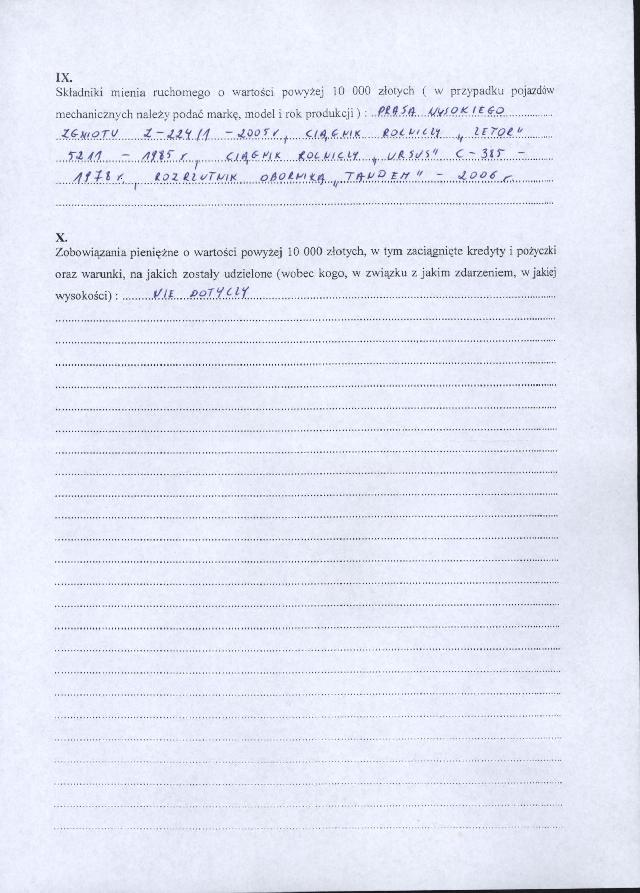 IX.
Składniki mienia ruchomego o wartości powyżej 10 000 złotych ( w przypadku pojazdów
mechanicznych należy podać markę, model i rok produkcji ) : PRASA WYSOKIEGO
ZGNIOTU Z-224/1 - 2005 r, CIĄGNIK ROLNICZY „ZETOR"
5211 - 1985 r, CIĄGNIK ROLNICZY „URSUS" C-385 -
1978 r, ROZRZUTNIK OBORNIKA „TANDEM" - 2006 r.
X.
Zobowiązania pieniężne o wartości powyżej 10 000 złotych, w tym zaciągnięte kredyty i pożyczki
oraz warunki, na jakich zostały udzielone (wobec kogo, w związku z jakim zdarzeniem, w jakiej
wysokości) : NIE DOTYCZY